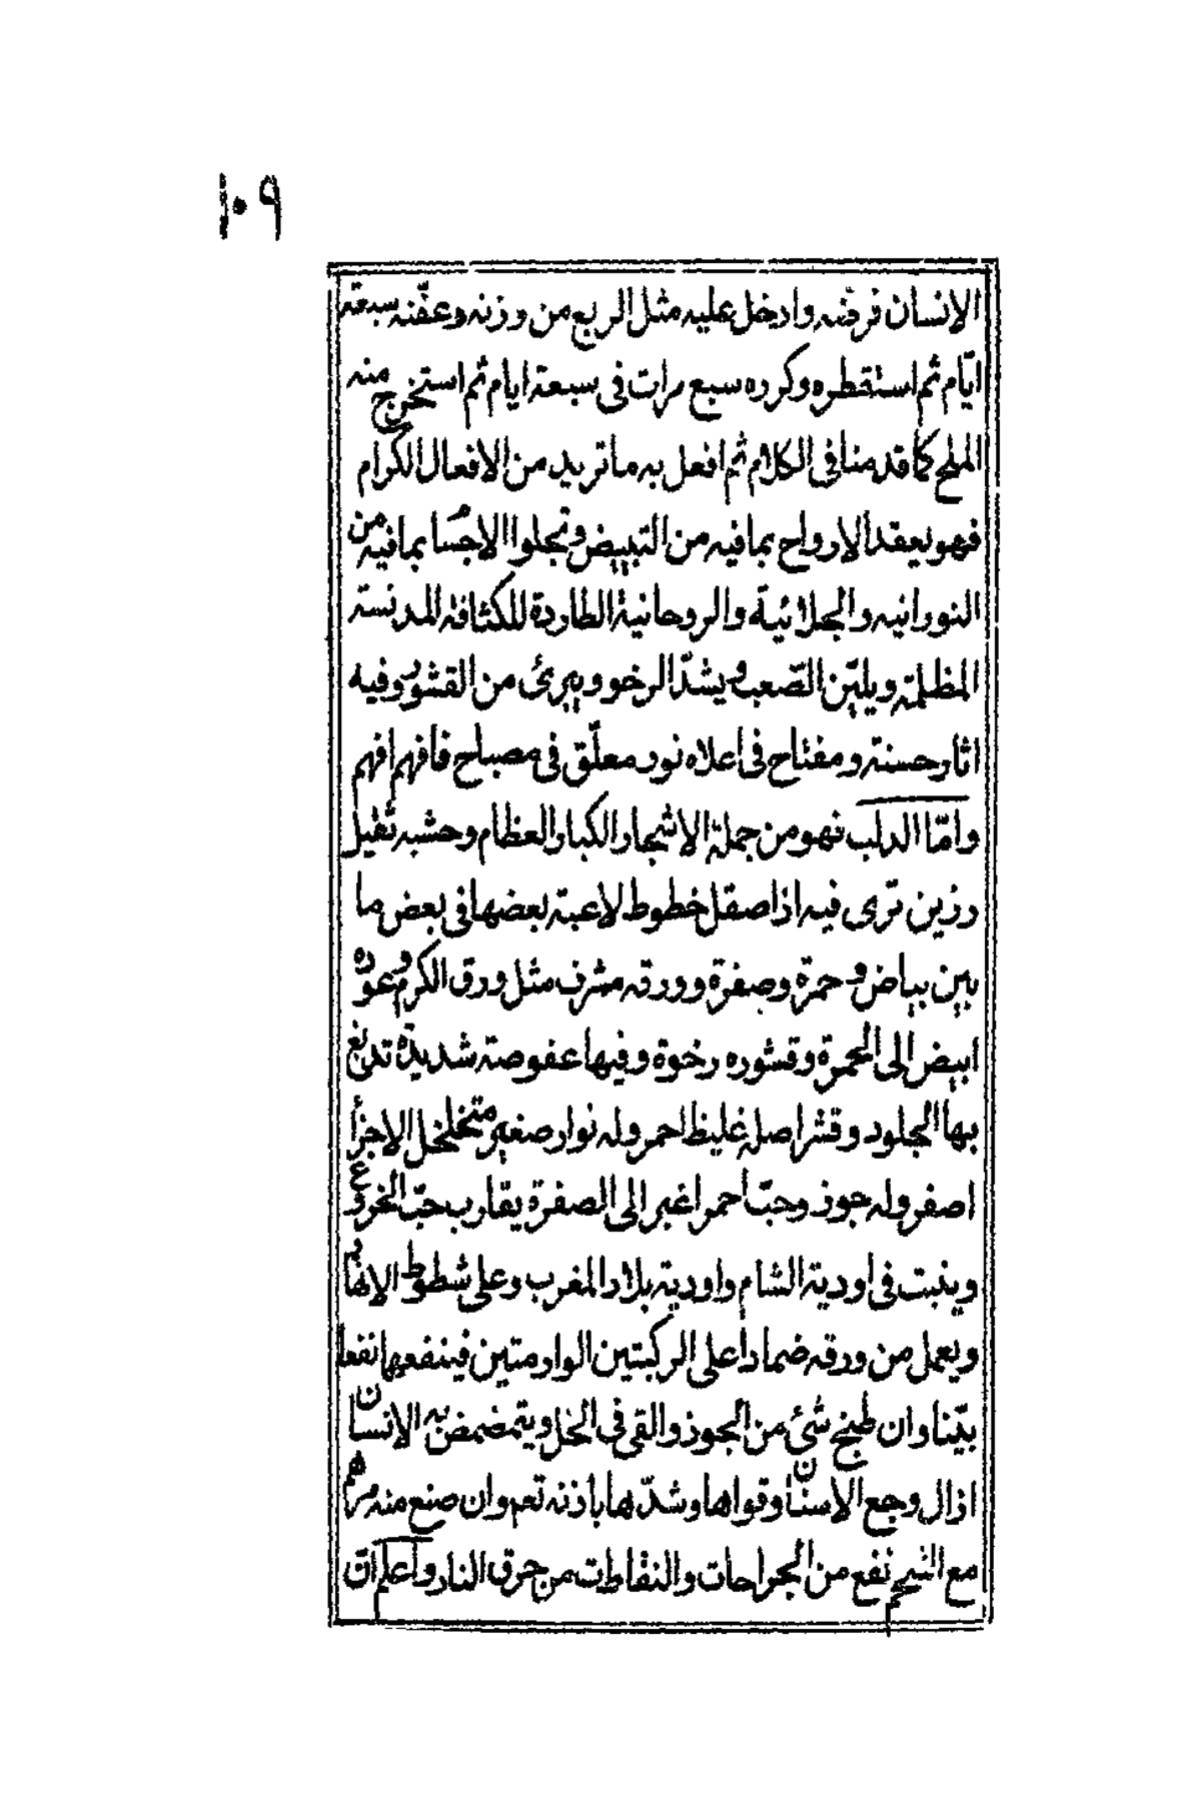 ١٠٩
الانسان فرقته وادخل عليه مثل الربع من وزنه وعفّنه سبعة
ايّام ثم استقطره وكرره سبع مرات فى سبعة ايام ثم استخرج منه
الملح كما قدمنا فى الكلام ثم افعل به ما تريد من الافعال الكرام
فهو يعقد الارواح بما فيه من التبييض وتجلوا الاجسام بما فيه من
النورانيه والجلائية والروحانية الطاردة للكثافة المدنسة
المظلمة ويليّن الصّعب ويشدّ الرخو ويبرئ من القشور وفيه
اثار حسنة ومفتاح فى اعلاه نور معلّق فى مصباح فافهم افهم
وامّا الدلب فهو من جملة الاشجار الكبار العظام وخشبه ثقيل
رزين ترى فيه اذا صقل خطوط لاعبة بعضها فى بعض ما
بين بياض وحمرة وصفرة وورقه مشرف مثل ورق الكرم وعوده
ابيض الى الحمرة وقشوره رخوة وفيها عفوصة شديدة تدبغ
بها الجلود وقشر اصله غليظ احمر وله نوار صغير متخلخل الاجزأ
اصفر وله جوز وحبّ احمر اغبر الى الصفرة يقارب حبّ الخروع
وينبت فى اودية الشام واودية بلاد المغرب وعلى شطوط الانهار
ويعمل من ورقه ضمادا على الركبتين الوارمتين فينفعها نفعا
بيّنا وان طبخ شئ من الجوز والقى فى الخل ويتمضمض به الانسان
ازال وجع الاسنان وقواها وشدّها باذنه تعم وان صنع منه مرهم
مع الشحم نفع من الجراحات والنقاطات من حرق النار واعلم انّ